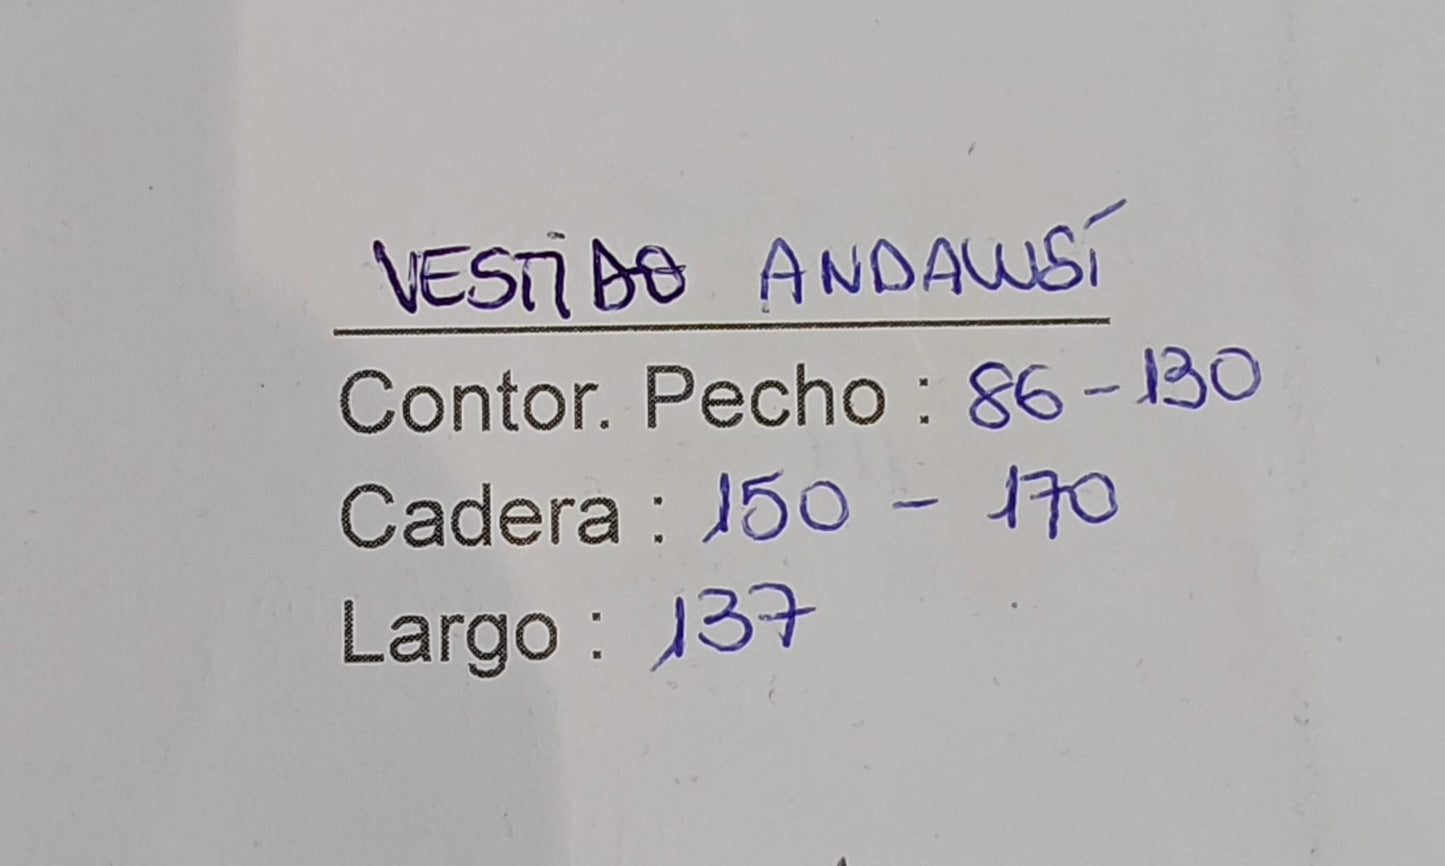 VESTIDO ANDALUSÍ
Contor. Pecho : 86 - 130
Cadera : 150 - 170
Largo : 137